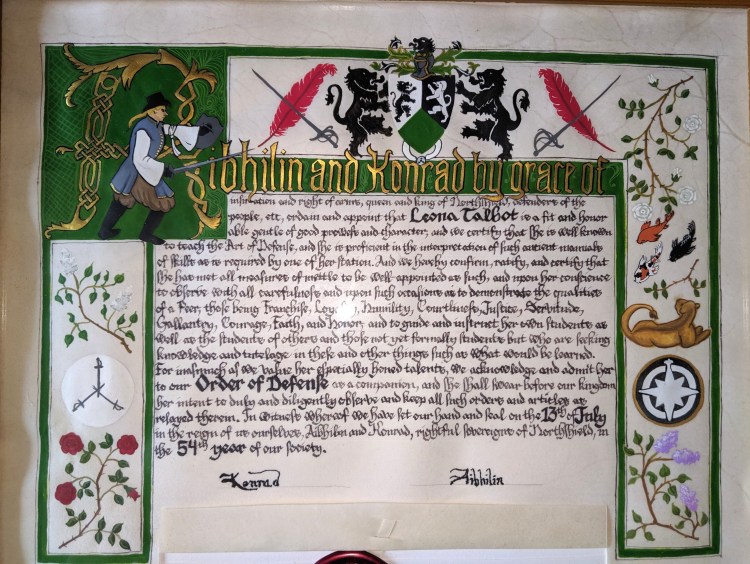 Aibhilin and Konrad by grace of
inspiration and right of arms, queen and king of Northshield, defenders of the
people, etc, ordain and appoint that Leona Talbot is a fit and honor
able gentle of good prowess and character, and we certify that she is well known
to teach the Art of Defense, and she is proficient in the interpretation of such antient manuals
of skills as is required by one of her station. And we hereby confirm, ratify, and certify that
she has met all measures of mettle to be well-appointed as such, and upon her conscience
to observe with all carefulness and upon such occasions as to demonstrate the qualities
of a Peer, those being Franchise, Loyalty, Humility, Courtliness, Justice, Servitude,
Gallantry, Courage, Faith, and Honor; and to guide and instruct her own students as
well as the students of others and those not yet formally students but who are seeking
knowledge and tutelage in these and other things such as what would be learned.
For inasmuch as we value her especially honed talents, we acknowledge and admit her
to our Order of Defense as a companion, and she shall swear before our kingdom
her intent to duly and diligently observe and keep all such orders and articles as
relayed therein. In witness whereof we have set our hand and seal on the 13th of July
in the reign of us ourselves, Aibhilin and Konrad, rightful sovereigns of Northshield, in
the 54th year of our society.
Konrad Aibhilin